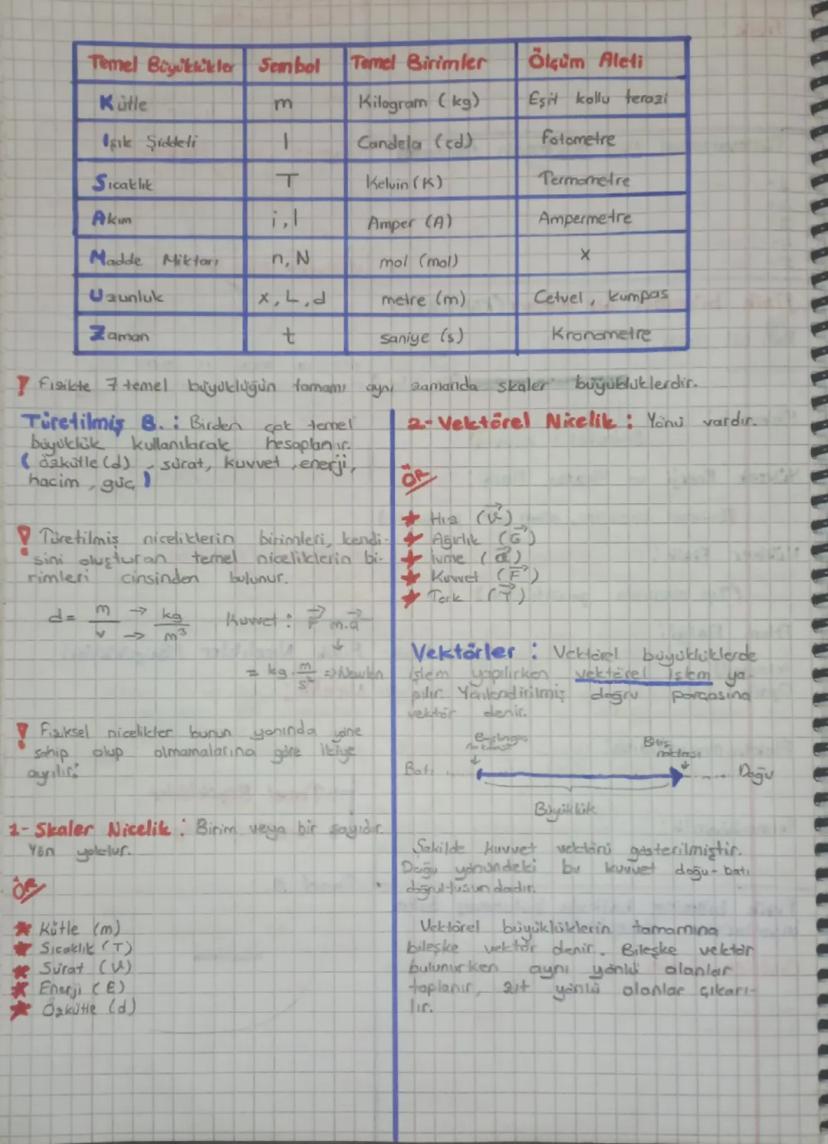 Temel Büyüklükler Sembol Temel Birimler Ölçüm Aleti
Kütle m Kilogram (kg) Eşit kollu terazi
Işık Şiddeti I Candela (cd) Fotometre
Sıcaklık T Kelvin (K) Termometre
Akım i, I Amper (A) Ampermetre
Madde Miktarı n, N mol (mol) x
Uzunluk x, L, d metre (m) Cetvel, kumpas
Zaman t saniye (s) Kronometre
! Fizikte 7 temel büyüklüğün tamamı aynı zamanda skaler büyüklüklerdir.
Türetilmiş B. : Birden çok temel
büyüklük kullanılarak hesaplanır.
( özkütle (d), sürat, kuvvet, enerji,
hacim, güç )
! Türetilmiş niceliklerin birimleri, kendi-
sini oluşturan temel niceliklerin bi-
rimleri cinsinden bulunur.
d = m/v → kg / → m³ Kuvvet : F⃗ m.a⃗
↓
= kg . m/s² => Newton
! Fiziksel nicelikler bunun yanında yöne
sahip olup olmamalarına göre ikiye
ayrılır:
1- Skaler Nicelik : Birim veya bir sayıdır.
Yön yoktur.
ÖR
★ Kütle (m)
★ Sıcaklık (T)
★ Sürat (V)
★ Enerji (E)
★ Özkütle (d)
2- Vektörel Nicelik : Yönü vardır.
ÖR
★ Hız (V⃗)
★ Ağırlık (G⃗)
★ İvme (a⃗)
★ Kuvvet (F⃗)
★ Tork (T⃗)
Vektörler : Vektörel büyüklüklerde
işlem yapılırken vektörel işlem ya-
pılır. Yönlendirilmiş doğru parçasına
vektör denir.
Başlangıç noktası Bitiş noktası
Batı Doğu
Büyüklük
Şekilde kuvvet vektörü gösterilmiştir.
Doğu yönündeki bu kuvvet doğu-batı
doğrultusundadır.
Vektörel büyüklüklerin tamamına
bileşke vektör denir. Bileşke vektör
bulunurken aynı yönlü olanlar
toplanır, zıt yönlü olanlar çıkarı-
lır.